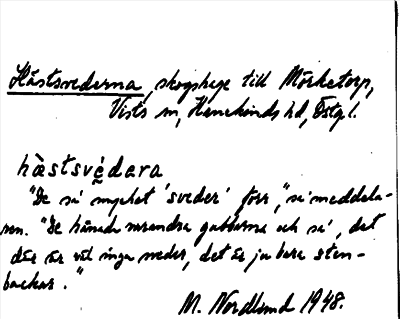 Hästsvederna, skogshage till Mörketorp,
Vists sn, Hanekinds hd, Östgl.
hàstsvé̱dara
"De sa mycket 'sveder' förr", sa meddela-
ren. "De hånade varandra gubbarna och sa, det
där är väl inga sveder, det är ju bara sten-
backar."
M. Nordlund 1948.